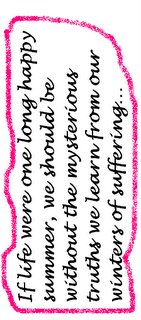 If life were one long happy
summer, we should be
without the mysterious
truths we learn from our
winters of suffering...